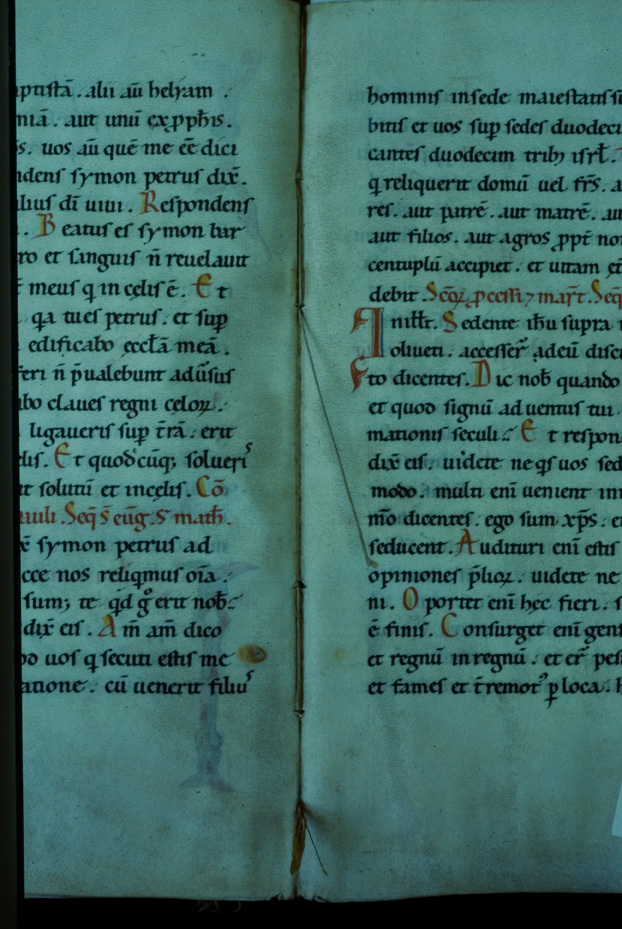 ptistā . alii aū helyam .
miā . aut unū ex ꝓpħis .
s . uos aū quē me eē dici
ndens symon petrus dix̄ .
lius dī uiui . Respondens
. Beatus es symon bar
ro et sanguis n̄ reuelauit
meus q in celis ē . Et
qa tu es petrus . et sup
edificabo eccl̄ā meā .
feri n̄ p̄ualebunt aduersus
bo claues regni celoꝝ .
ligaueris sup t̄rā . erit
elis . Et quodcūqꝫ solueris
it solutū et in celis . Cō
Seqs euḡ . s̄ matħ .
symon petrus ad
cce nos reliqmus oīa .
sumꝰ te qd g̊ erit nob̄ .
dix̄ eis . Am̄ am̄ dico
uos q secuti estis me
atione . cū uenerit filiuˢ
hominis in sede maiestatis su
bitis et uos sup sedes duodeci
cantes duodecim tribꝫ isrł .
q reliquerit domū uel fr̄s . a
res . aut patrē . aut matrē . au
aut filios . aut agros ꝓpt̄ no
centuplū accipiet . et uitam et̄
debit . Seqꝫ ꝓcessi ⁊ mart̄ . Seq
In ill̄t . Sedente iħu supra
oliueti . accesser̄ ad eū disci
to dicentes . Dic nob̄ quando
et quod signū aduentus tui
mationis seculi . Et respon
dix̄ eis . uidete ne qs uos sed
modo . multi enī uenient in
m̄o dicentes . ego sum xp̄s . et
seducent . Audituri enī estis
opiniones p̄lioꝝ . uidete ne
ni . Oportet enī hec fieri . s
ē finis . Consurget enī gens
et regnū in regnū . et er̄ pes
et fames et t̄remotꝰ ꝑ loca . h